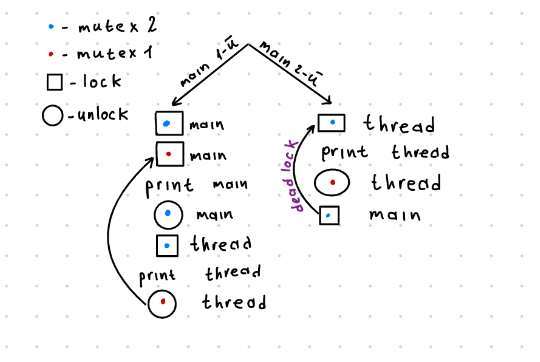 • - mutex 2
• - mutex 1
□ - lock
○ - unlock
main 1-й
main 2-й
main
main
print main
main
thread
print thread
thread
thread
print thread
thread
main
dead lock